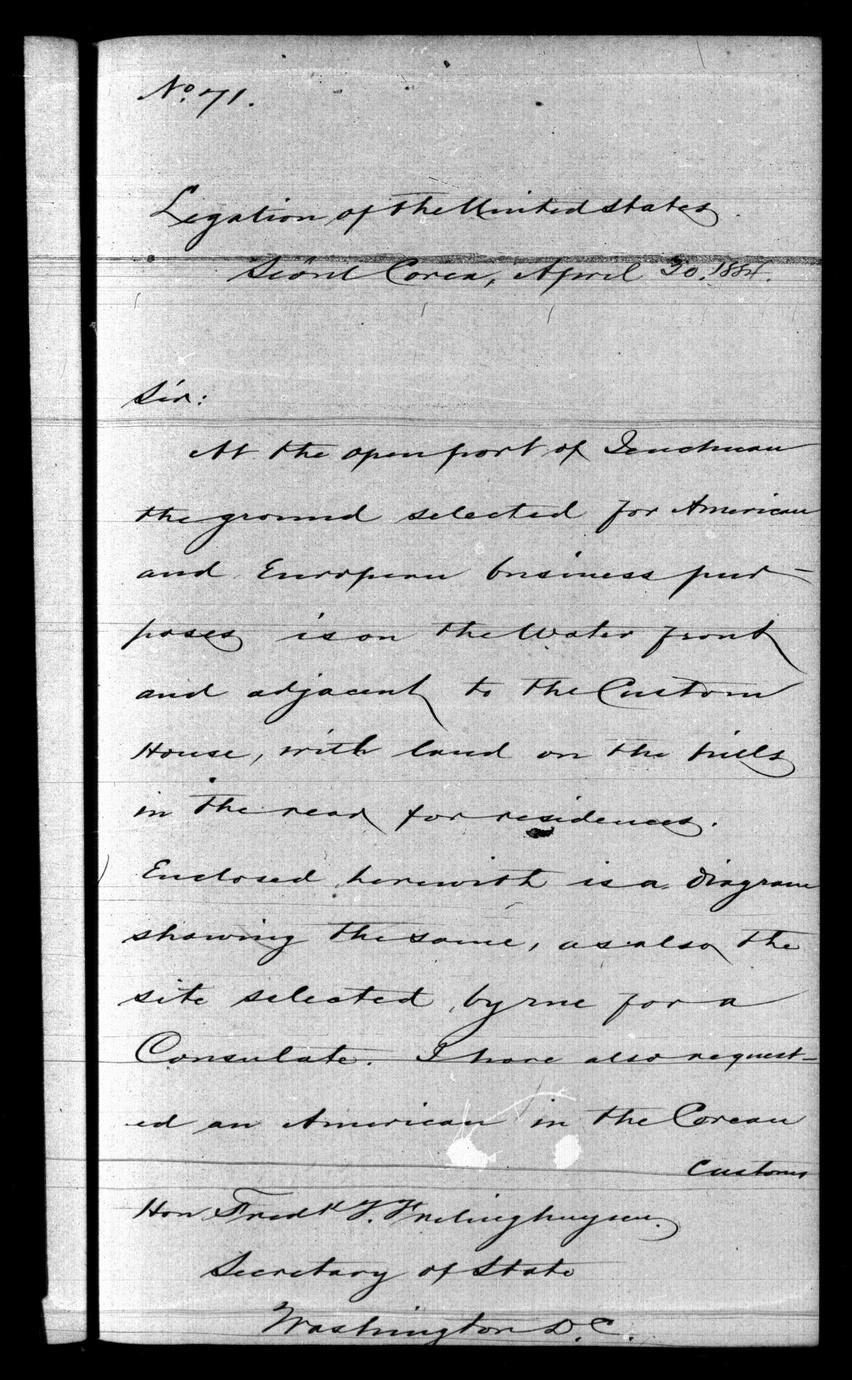 No. 71.
Legation of the United States.
Seoul Corea, April 30. 1884.
Sir:
At the open port of Jenchuan
the ground selected for American
and European business pur-
poses is on the Water front
and adjacent to the Custom
House, with land on the hills
in the rear for residences.
Enclosed herewith is a diagram
showing the same, as also the
site selected by me for a
Consulate. I have also request-
ed an American in the Corean
Customs
Hon Fredk T. Frelinghuysen.
Secretary of State
Washington D.C.